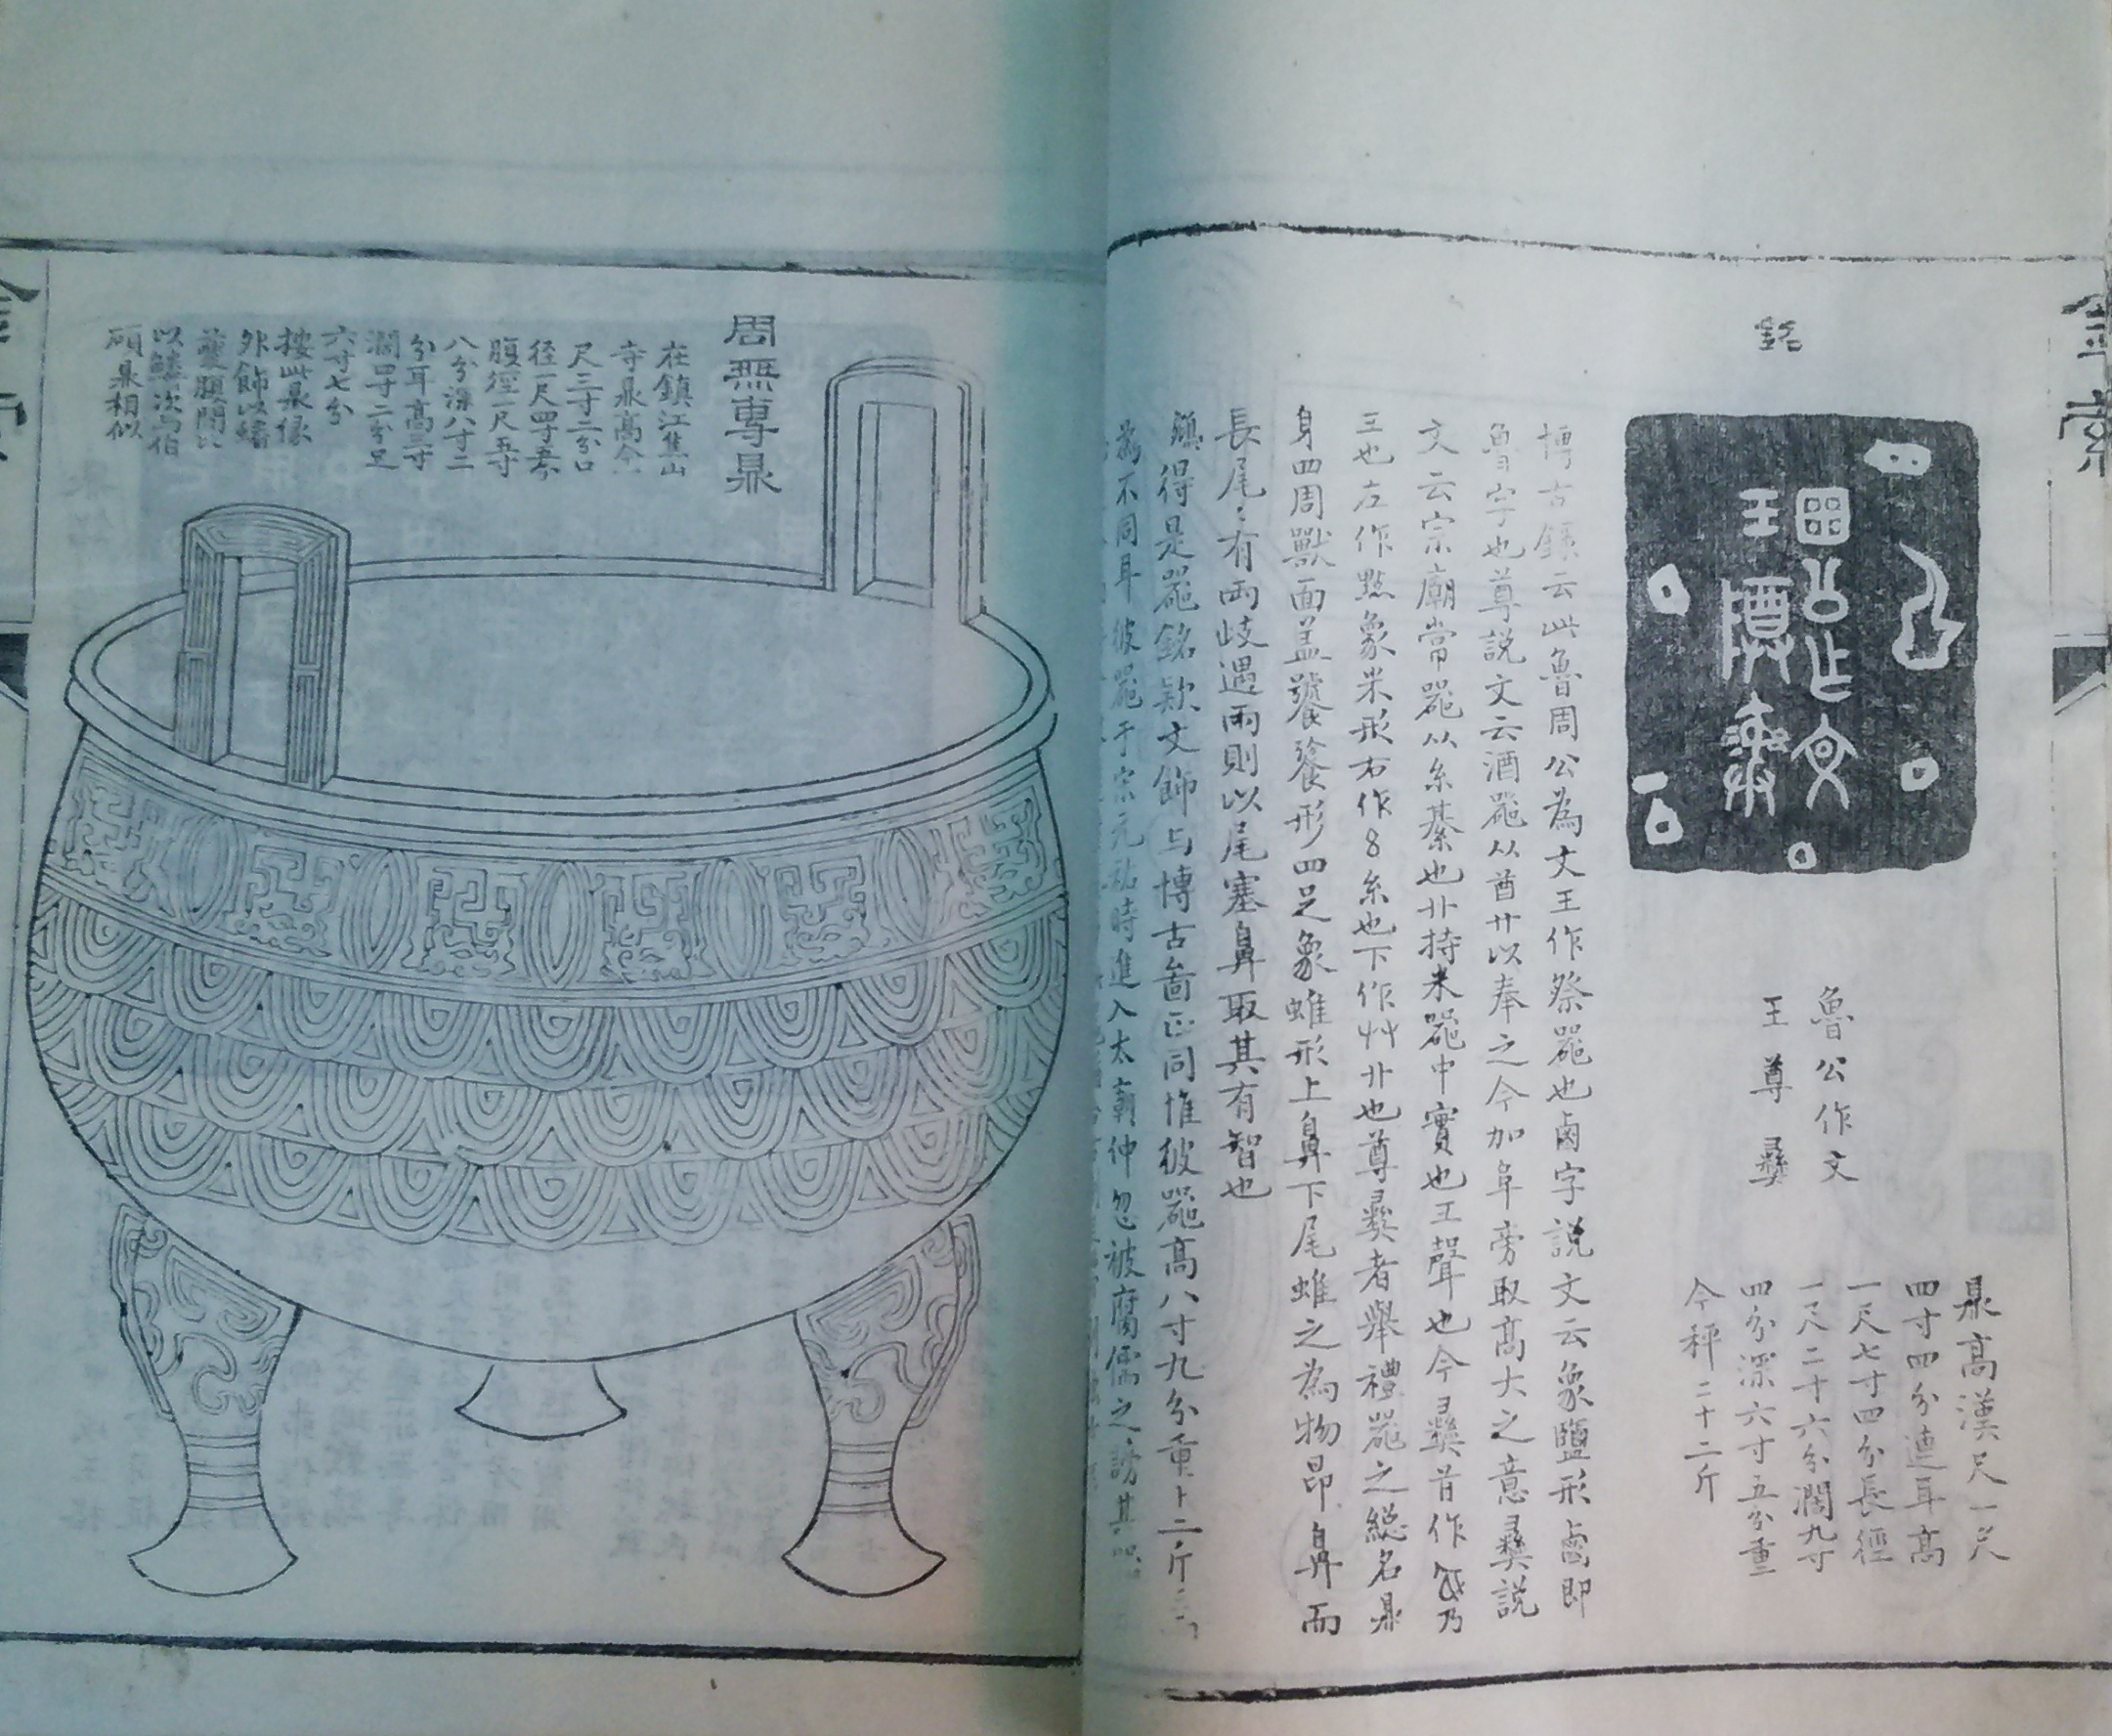 金索
銘
魯公作文
王尊彝
鼎高漢尺一尺
四寸四分連耳高
一尺七寸四分長徑
一尺二寸六分濶九寸
四分深六寸五分重
今秤二十二斤
博古錄云此魯周公為文王作祭器也鹵字說文云象鹽形鹵即
魯字也尊說文云酒器从酋廾以奉之今加阜旁取高大之意彝說
文云宗廟常器从糸綦也廾持米器中實也彑聲也今彝首作乃
三也左作點象米形右作8糸也下作艸廾也尊彝者舉禮器之總名鼎
身四周獸面盖饕餮形四足象蜼形上鼻下尾蜼之為物昂鼻而
長尾：有兩岐遇雨則以尾塞鼻取其有智也
得是器銘欵文飾与博古啚正同惟彼器高八寸九分重十二斤
為不同耳彼器于宋元祐時進入太朝仲忽被腐儒之謗其
周無專鼎
在鎮江焦山
寺鼎高今一
尺三寸二分口
径一尺四寸五分
腹徑一尺五寸
八分深八寸二
分耳高三寸
濶四寸二分足
六寸七分
按此鼎緣
外飾以
夔腹間
以鱗次与伯
碩鼎相似